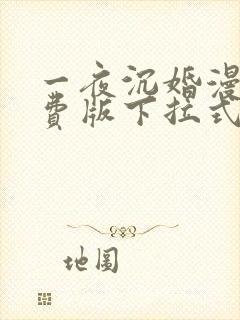 一夜沉婚漫
费版下拉式
地图